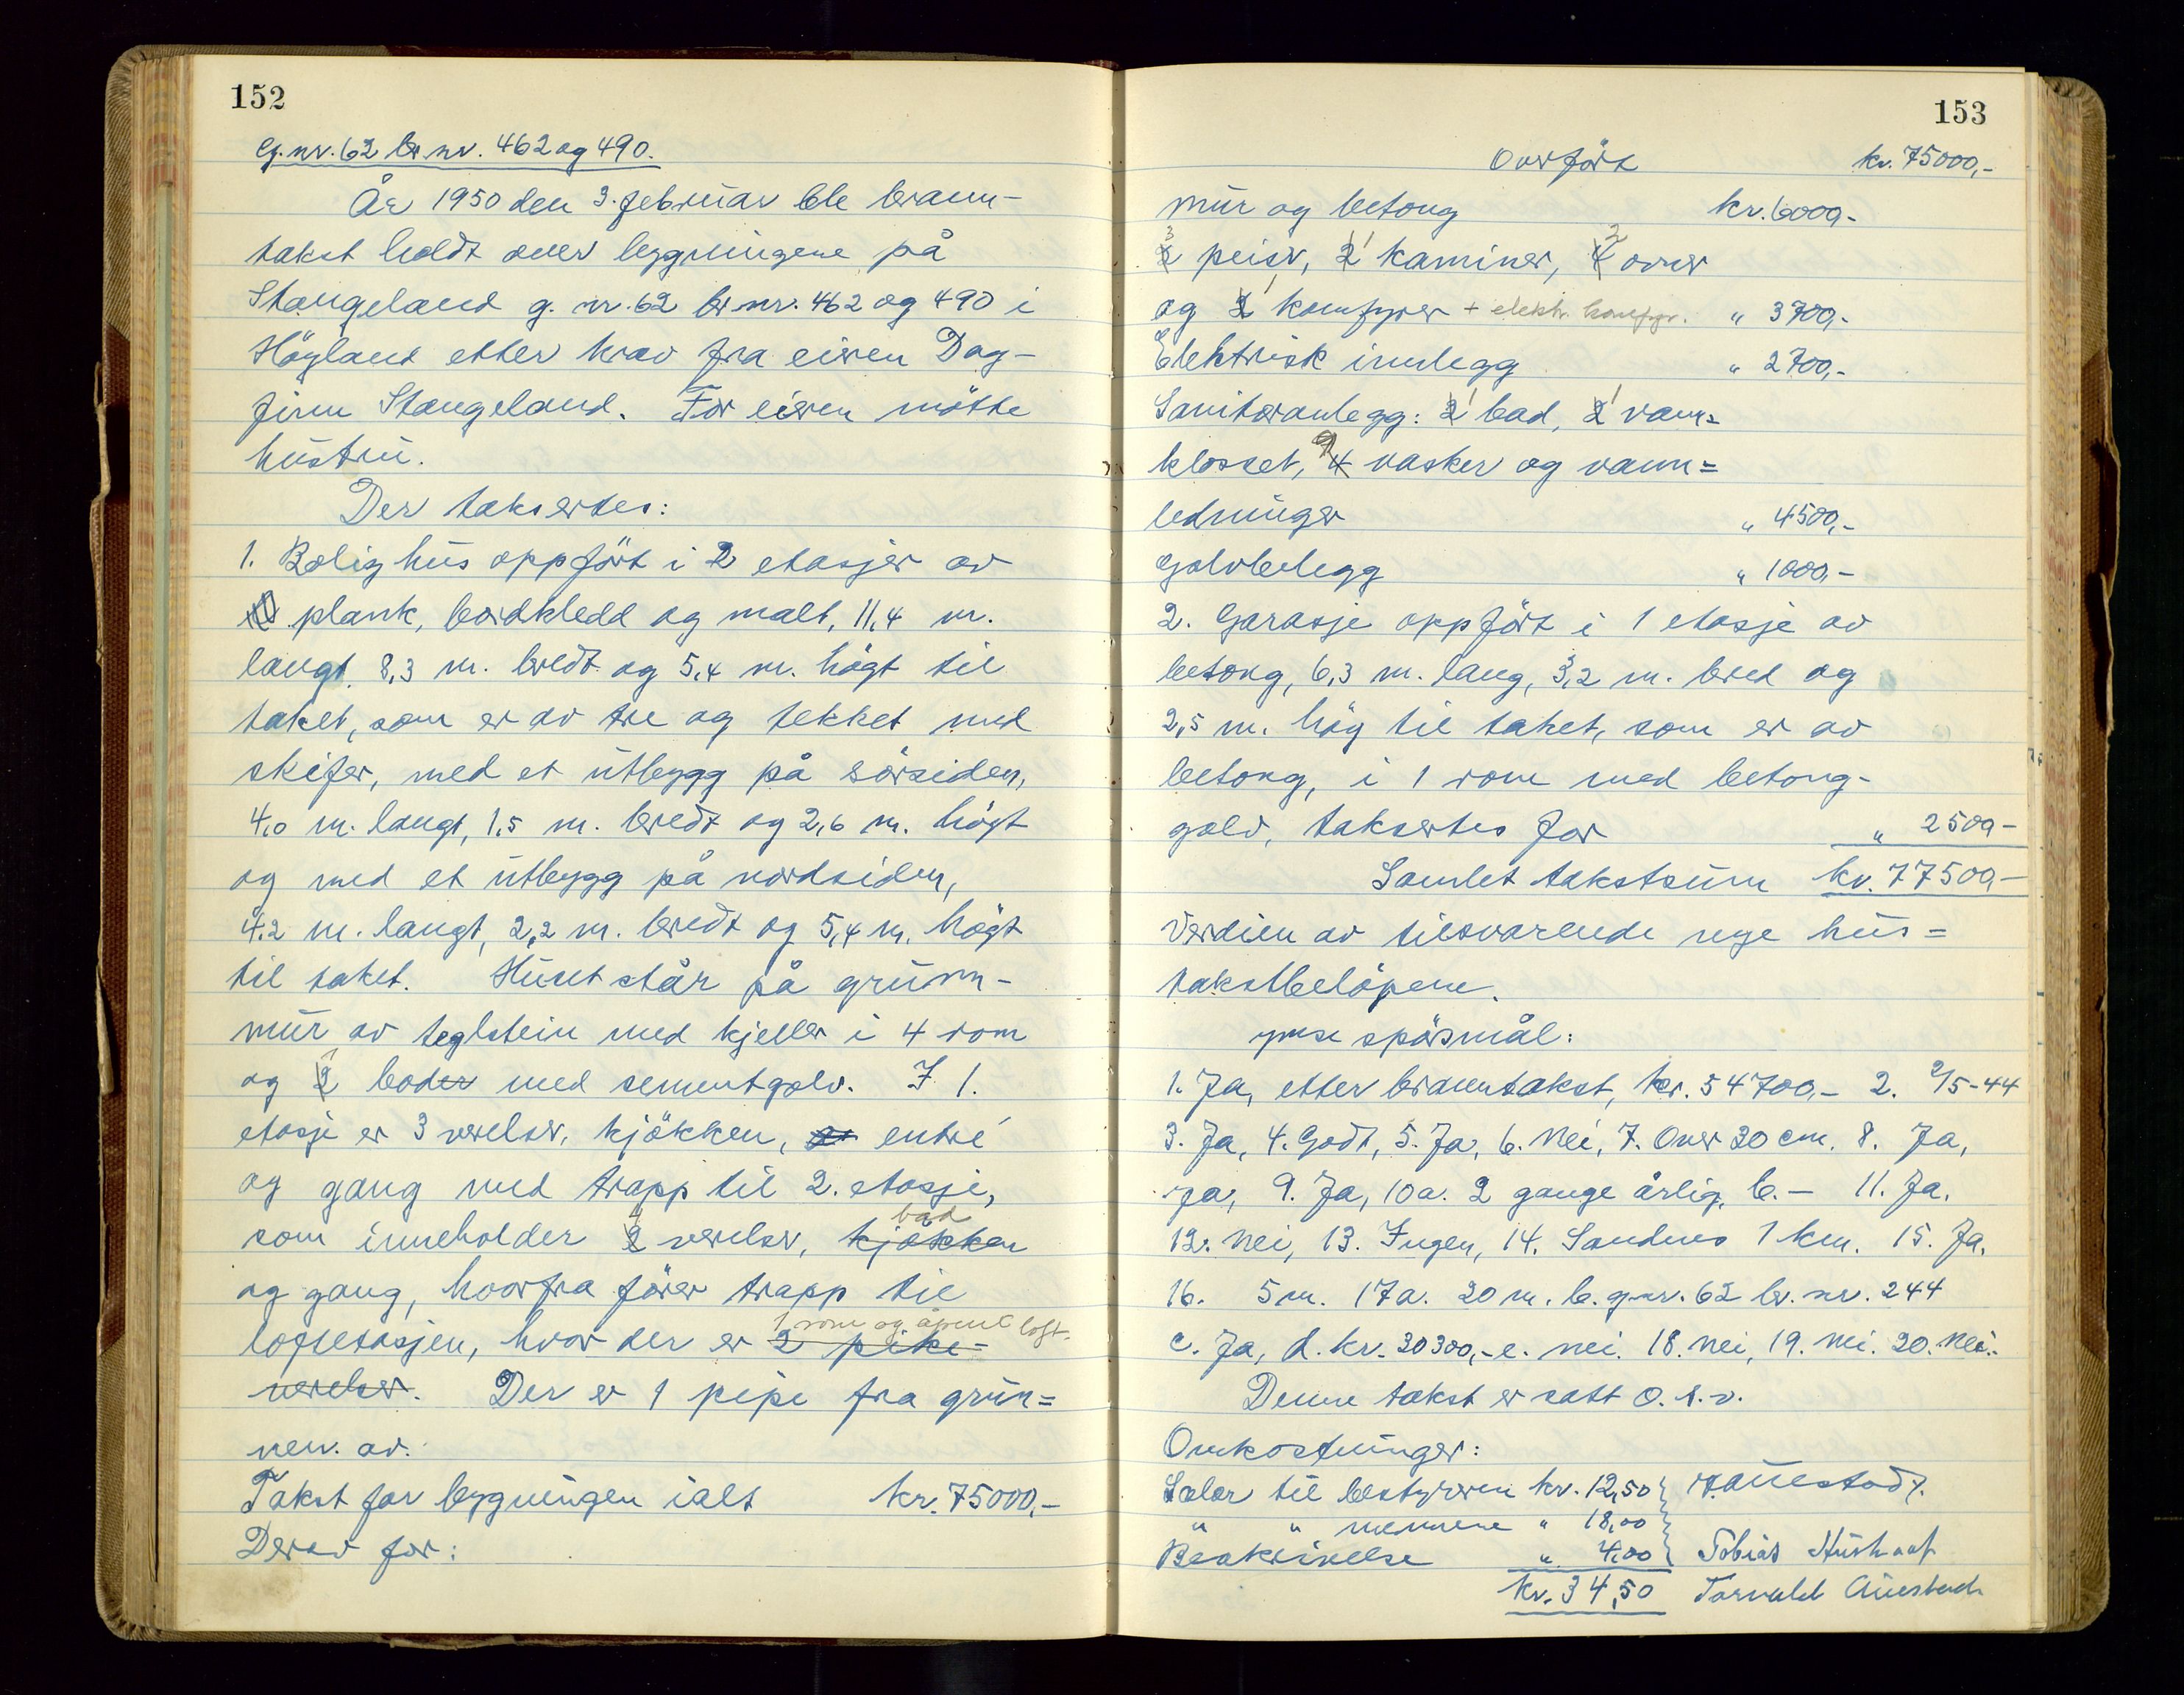 152
G.nr. 62 br.nr. 462 og 490.
År 1950 den 3. februar ble brann-
takst holdt over bygningene på
Stangeland g. nr. 62 br.nr. 462 og 490 i
Höyland etter krav fra eieren Dag-
finn Stangeland. For eieren mötte
hustru.
Der taksertes:
1. Bolighus oppfört i 2 etasjer av
plank, bordkledd og malt, 11,4 m.
langt, 8,3 m. bredt og 5,4 m. högt til
taket, som er av tre og tekket med
skifer, med et utbygg på sörsiden,
4,0 m. langt, 1,5 m. bredt og 2,6 m. högt
og med et utbygg på nordsiden,
4,2 m. langt, 2,2 m. bredt og 5,4 m. högt
til taket. Huset står på grunn-
mur av teglstein med kjeller i 4 rom
1
og 2 boder med sementgolv. I 1.
etasje er 3 værelser, kjökken, entré
og gang med trapp til 2. etasje,
4 bad
som inneholder 2 værelser, kjökken
og gang, hvorfra förer trapp til
1 rom og åpent loft.
loftetasjen, hvor der er 2 pike-
værelser. Der er 1 pipe fra grun=
nen av.
Takst for bygningen ialt kr. 75000,-
Derav for:
153
Overfört kr. 75000,-
mur og betong kr. 6000,-
3 1 2
2 peiser, 2 kaminer, 4 ovner
1
og 2 komfyrer + elektr. komfyr. " 3700,-
Elektrisk innlegg " 2700,-
1 1
Sanitæranlegg: 2 bad, 2 vann=
9
klosset, 4 vasker og vann=
ledninger " 4500,-
Golvbelegg " 1000,-
2. Garasje oppfört i 1 etasje av
betong, 6,3 m. lang, 3,2 m. bred og
2,5 m. hög til taket, som er av
betong, i 1 rom med betong-
golv, taksertes for " 2500,-
Samlet takstsum kr. 77500,-
Verdien av tilsvarende nye hus =
takstbelöpene.
Ymse spörsmål:
1. Ja, etter branntakst, kr. 54700,- 2. 2/5-44
3. Ja, 4. Godt, 5. Ja, 6. Nei, 7. Over 30 cm. 8. Ja,
ja, 9. Ja, 10a. 2 gange årlig, b. - 11. Ja.
12. Nei, 13. Ingen, 14. Sandnes 1 km. 15. Ja.
16. 5 m. 17a. 20 m. b. g.nr. 62 br. nr. 244
c. Ja, d. kr. 30300,- e. nei. 18. Nei, 19. Nei. 20. Nei.
Denne takst er satt o. s. v.
Omkostninger:
Salær til bestyreren kr. 12,50
" " mennene " 18,00
Beskrivelse " 4,00 Tobias
kr. 34,50 Torvald